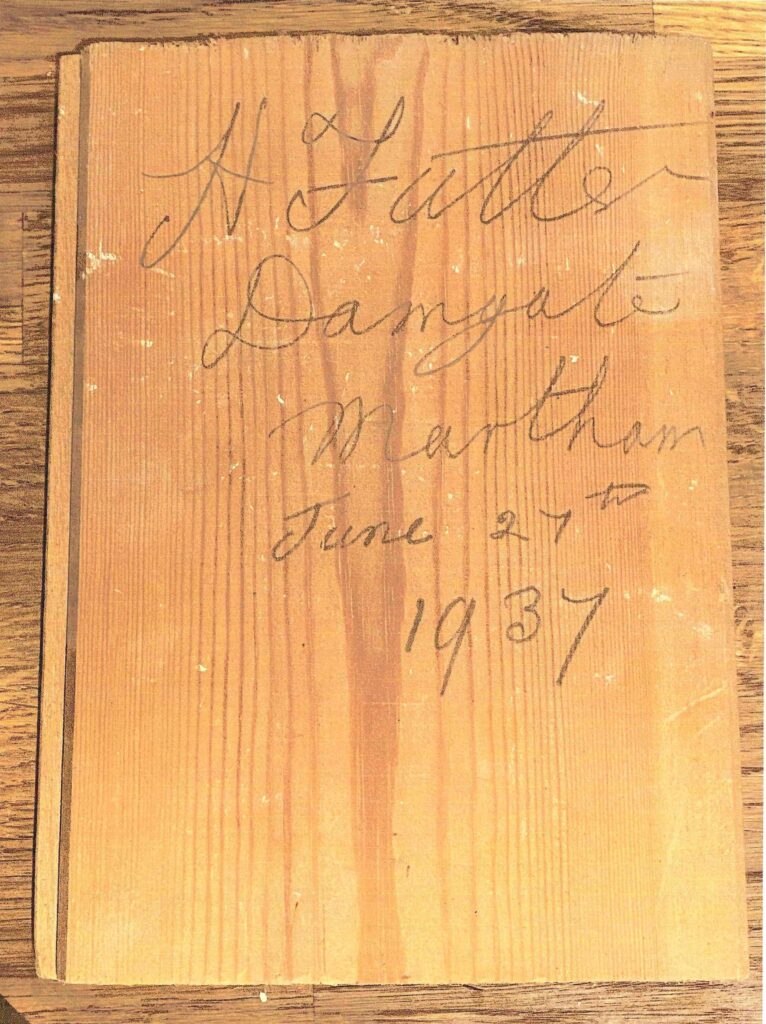 H Futter
Damgate
Martham
June 27th
1937